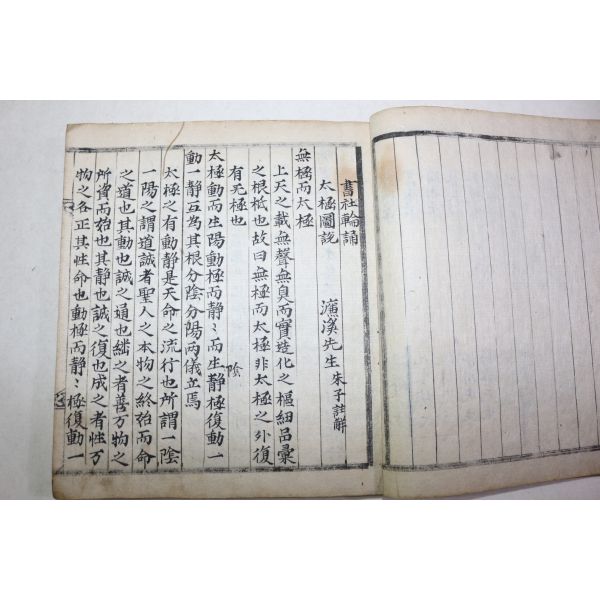 書社輪誦
太極圖說 濂溪先生 朱子註解
無極而太極
上天之載無聲無臭而實造化之樞紐品彙
之根柢也故曰無極而太極非太極之外復
有无極也
陰
太極動而生陽動極而静〻而生静極復動一
動一静互為其根分陰分陽兩儀立焉
太極之有動静是天命之流行也所謂一陰
一陽之謂道誠者聖人之本物之終始而命
之道也其動也誠之通也継之者善万物之
所資而始也其静也誠之復也成之者性万
物之各正其性命也動極而静〻極復動一